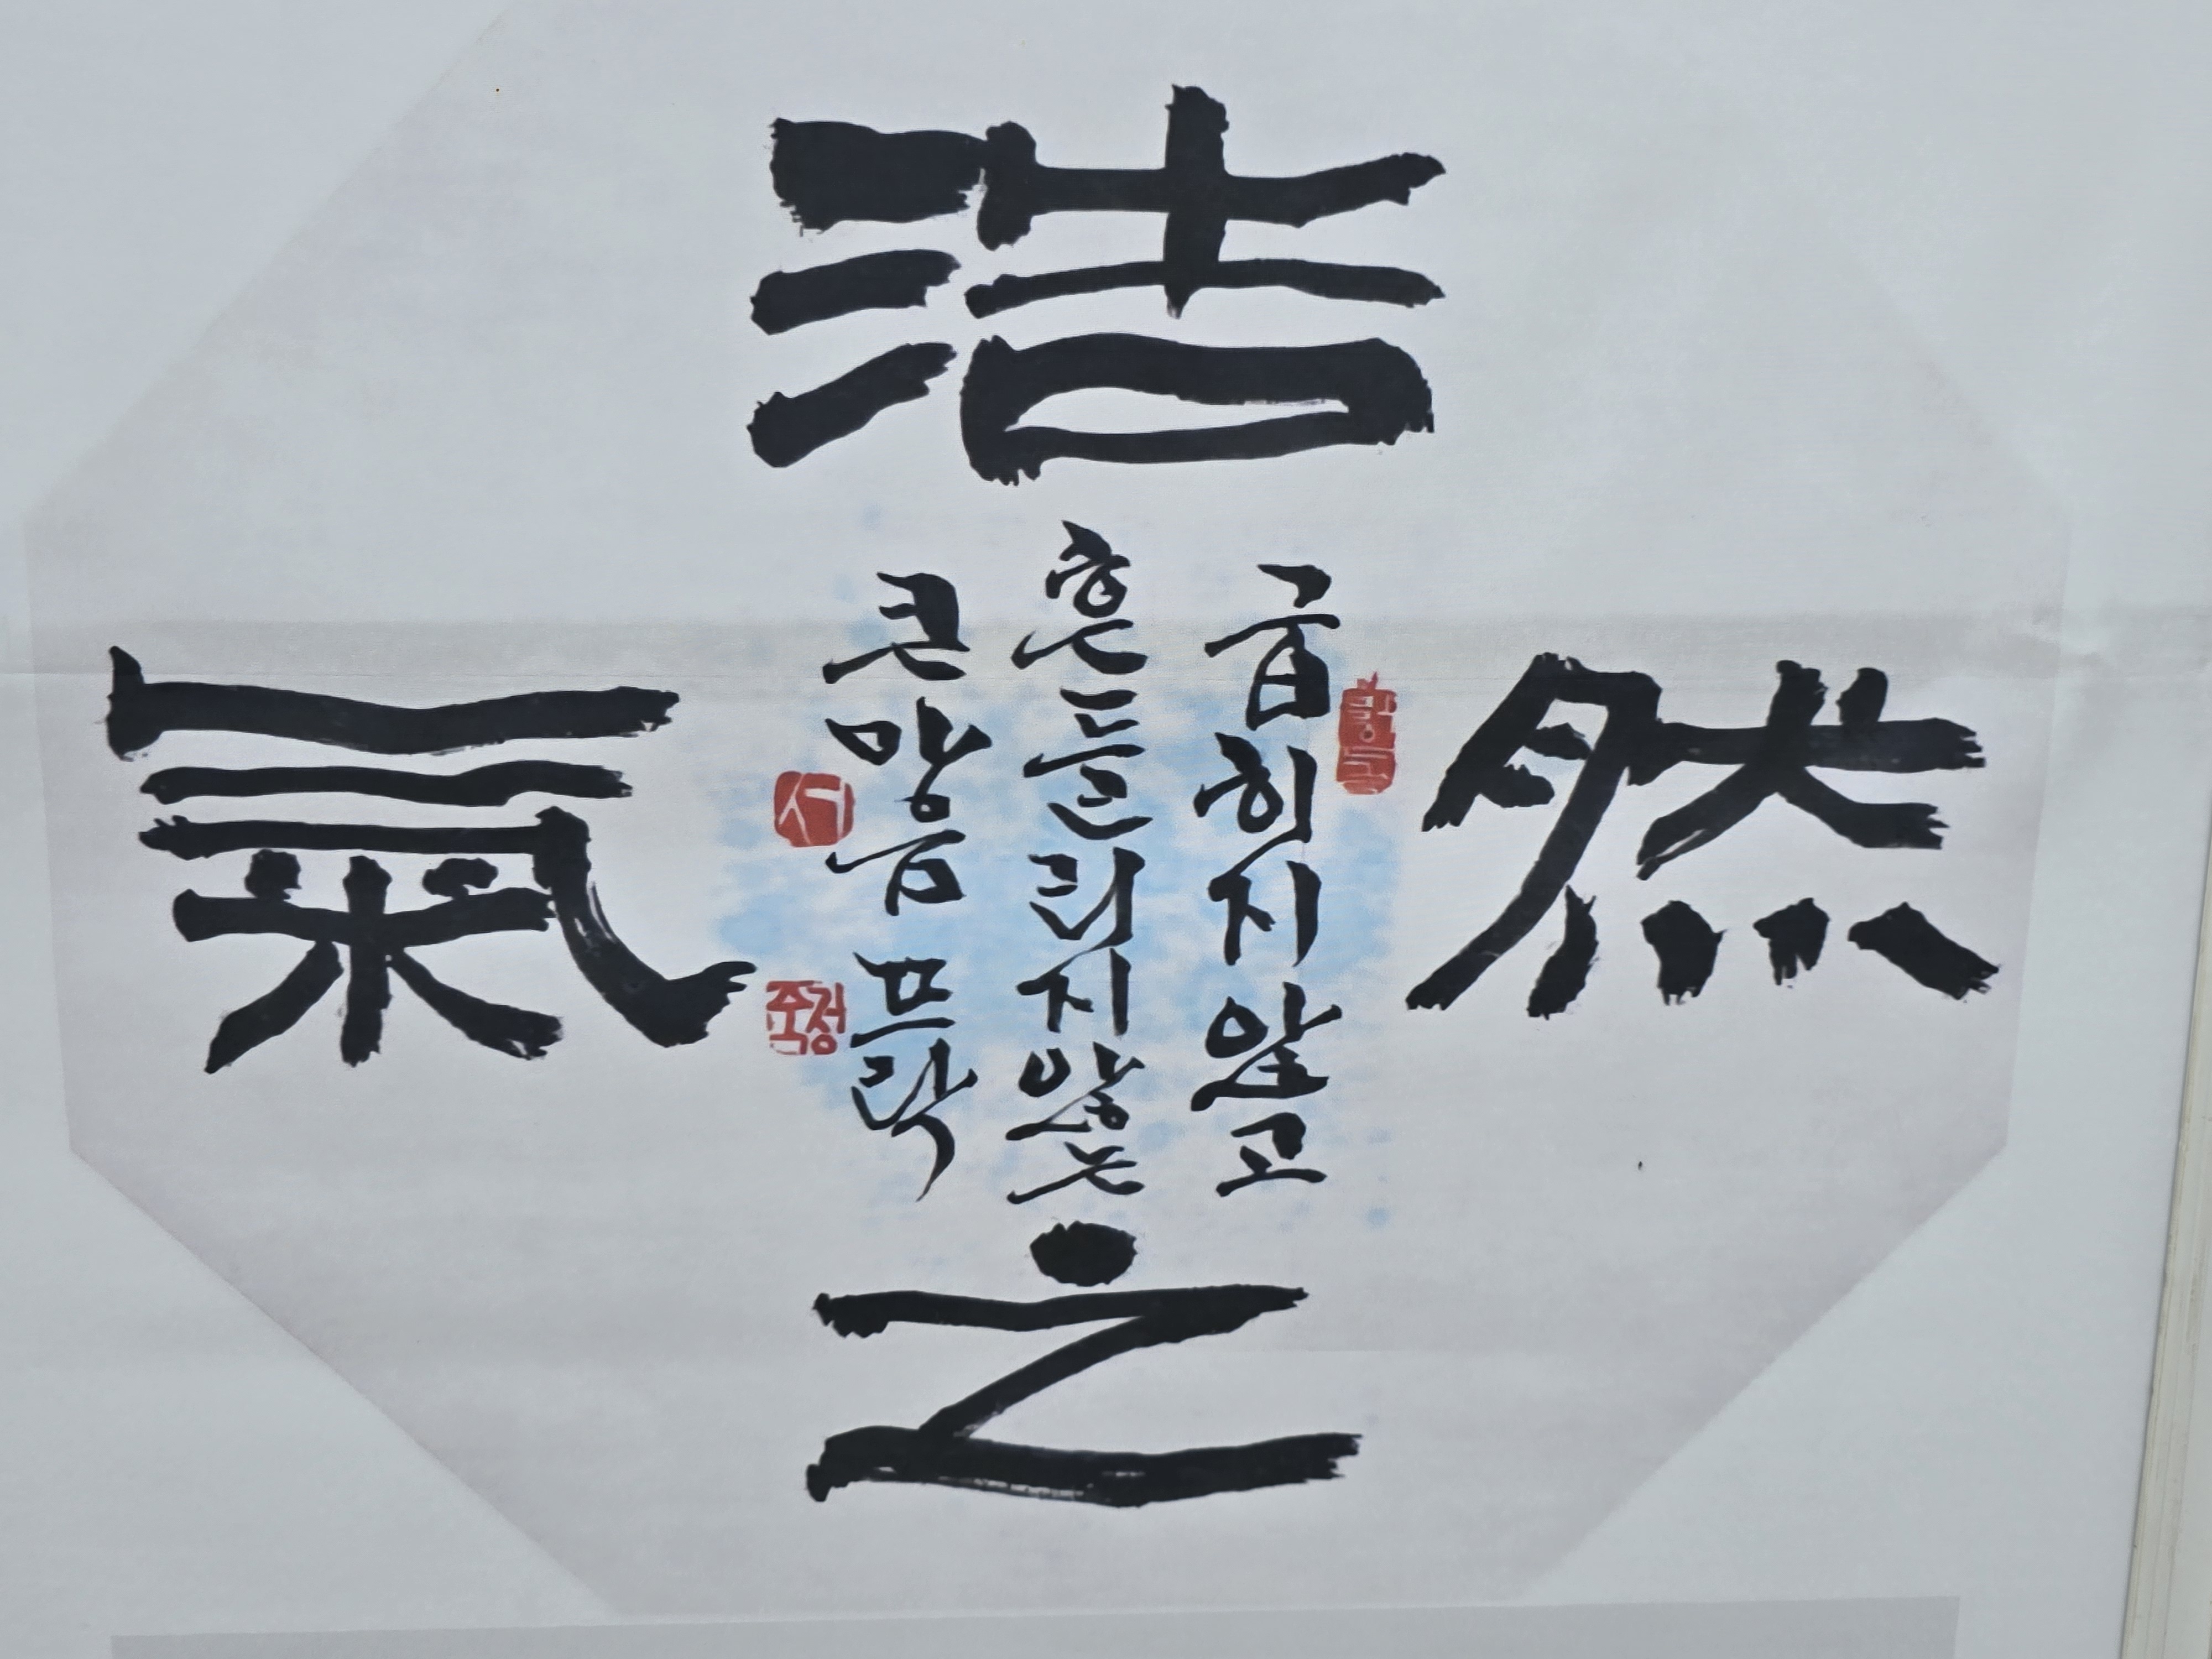 浩
然
之
氣
굽히지않고
흔들리지않는
큰마음 뜨락
서